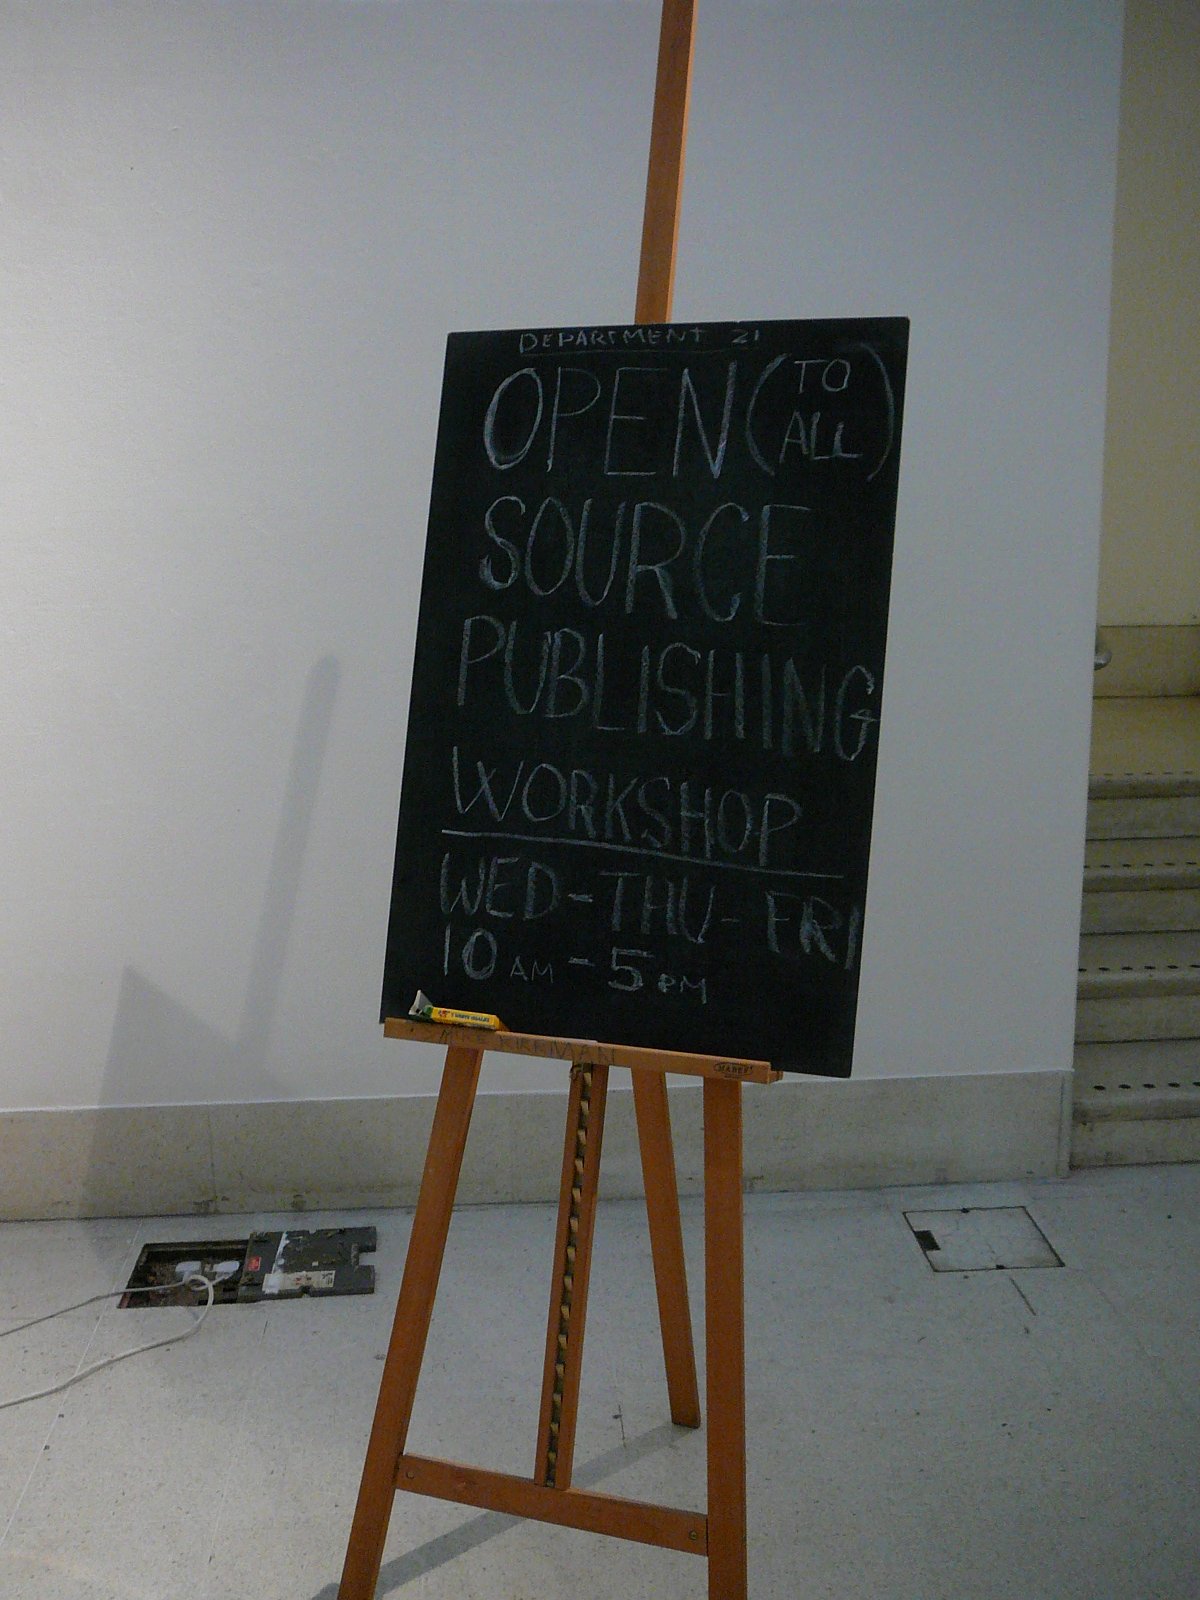 DEPARTMENT 21
OPEN (TO ALL)
SOURCE
PUBLISHING
WORKSHOP
WED-THU-FRI
10 AM - 5 PM
KIRKMAN
MABEF